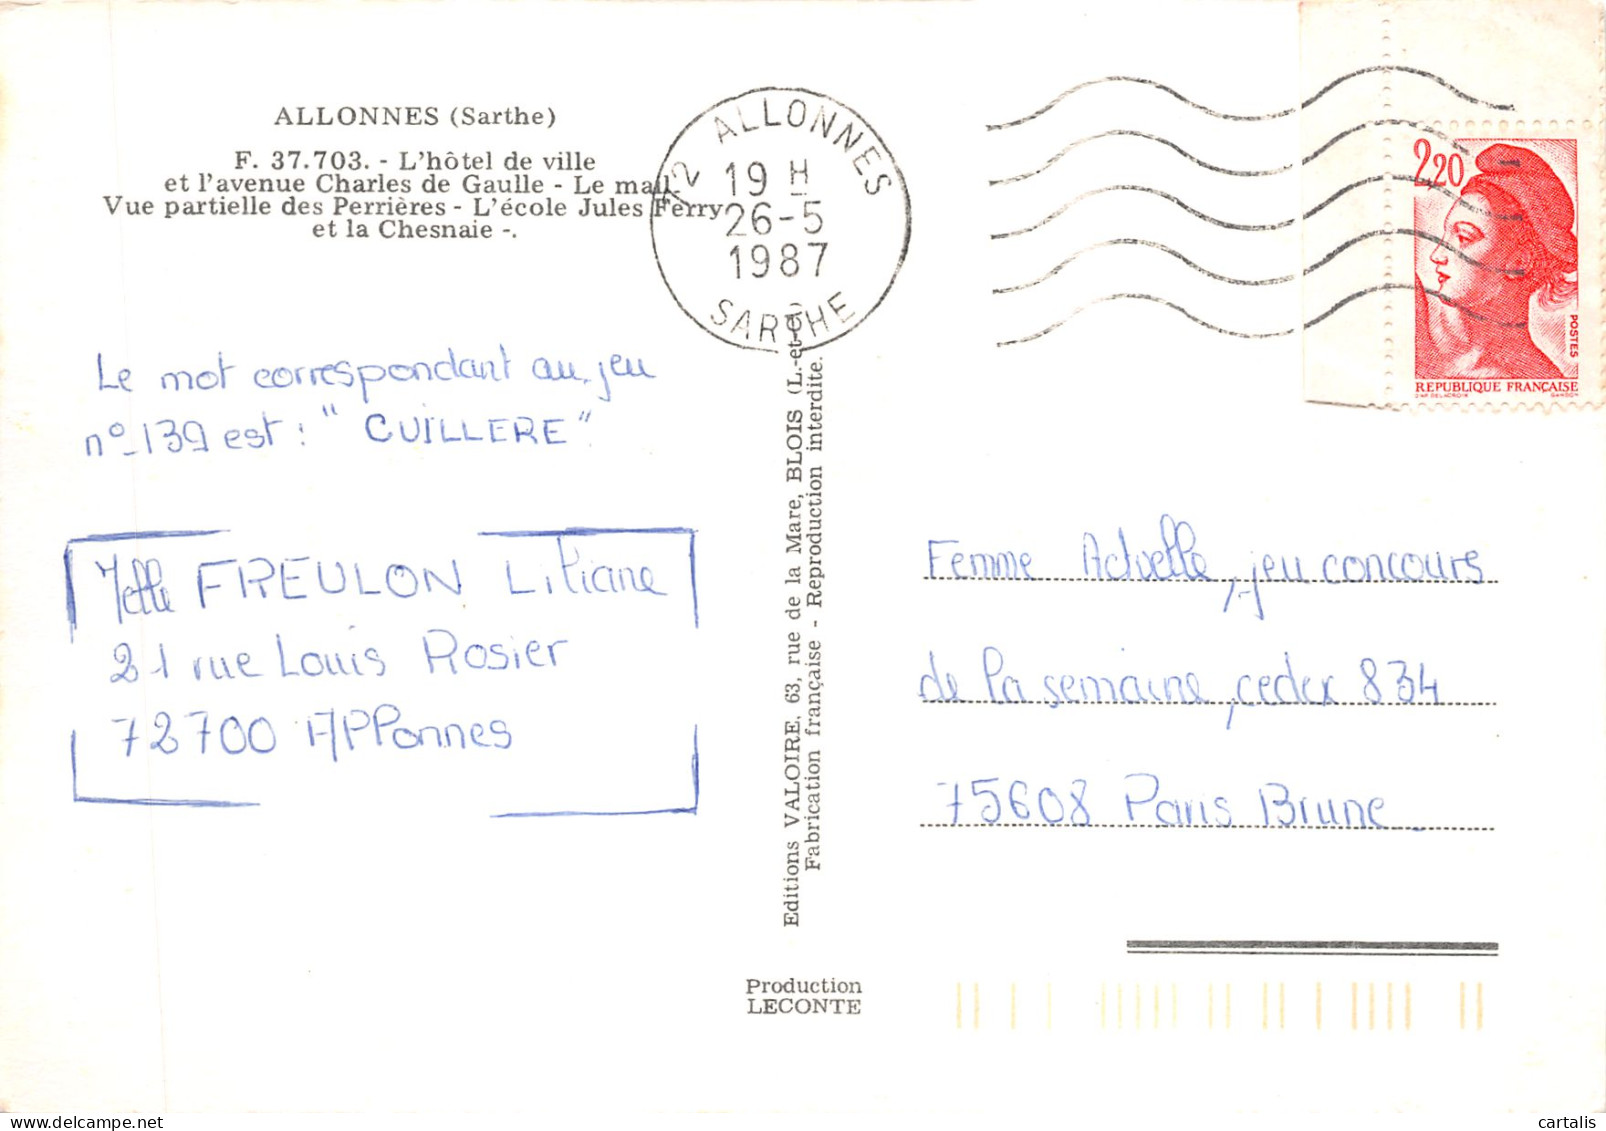 ALLONNES (Sarthe)
F. 37.703. - L'hôtel de ville
et l'avenue Charles de Gaulle - Le mail.
Vue partielle des Perrières - L'école Jules Ferry
et la Chesnaie -.
72 ALLONNES
19 H
26-5
1987
SARTHE
2,20
POSTES
REPUBLIQUE FRANÇAISE
D'AP. DELACROIX GANDON
Le mot correspondant au jeu
n° 139 est : "CUILLERE"
Melle FREULON Liliane
21 rue Louis Rosier
72700 Allonnes
Editions VALOIRE, 63, rue de la Mare, BLOIS (L.-et-C)
Fabrication française - Reproduction interdite.
Femme Actuelle, jeu concours
de la semaine, cedex 834
75608 Paris Brune
Production
LECONTE
cartalis